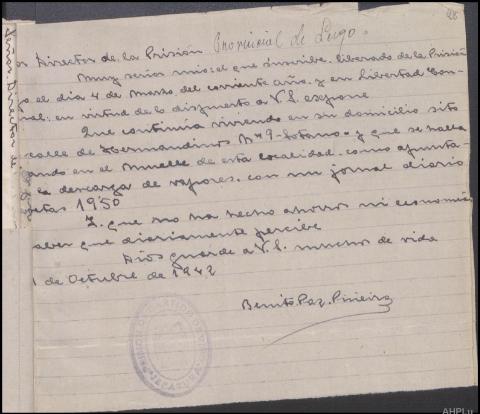 28
or Director de la Prisión Provincial de Lugo.
Muy señor mio: el que suscribe, liberado de la Prisión
el dia 4 de Marzo del corriente año, y en libertad Con-
nal: en virtud de lo dispuesto a V.S. expone
Que continúa viviendo en su domicilio sito
calle de Hermandinos Nº 9-Sotano- y que se halla
ando en el Muelle de esta localidad como apunta-
descarga de vapores, con un jornal diario
etas 1950
Y que no ha hecho ahorros ni economía
aber que diariamente percibe
Dios guarde a V.S. muchos de vida
1 de Octubre de 1942
Benito Paz Piñeiro
Señor Director de
AHPLu